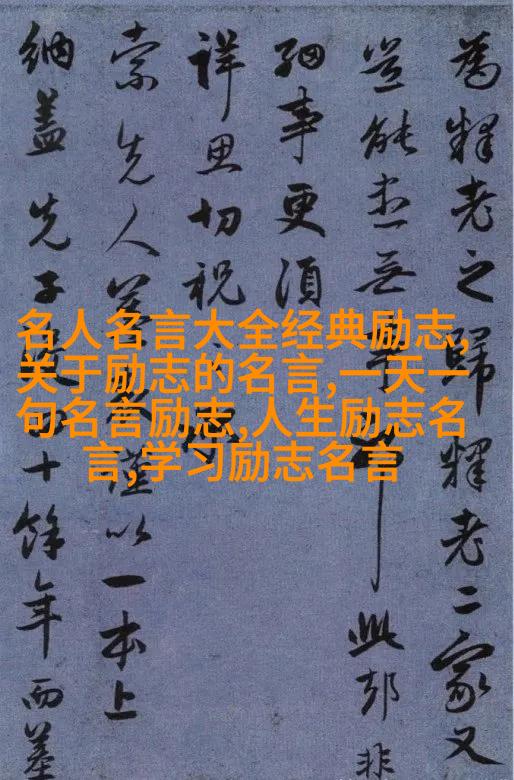 名人名言大全经典励志,
关于励志的名言,一天一
句名言励志,人生励志名
言,学习励志名言
為釋老之歸釋老二家又
豈能無事此却非
細事更須
詳思切祝
索先人墓謹以一本上
納蓋先子十餘年而墓